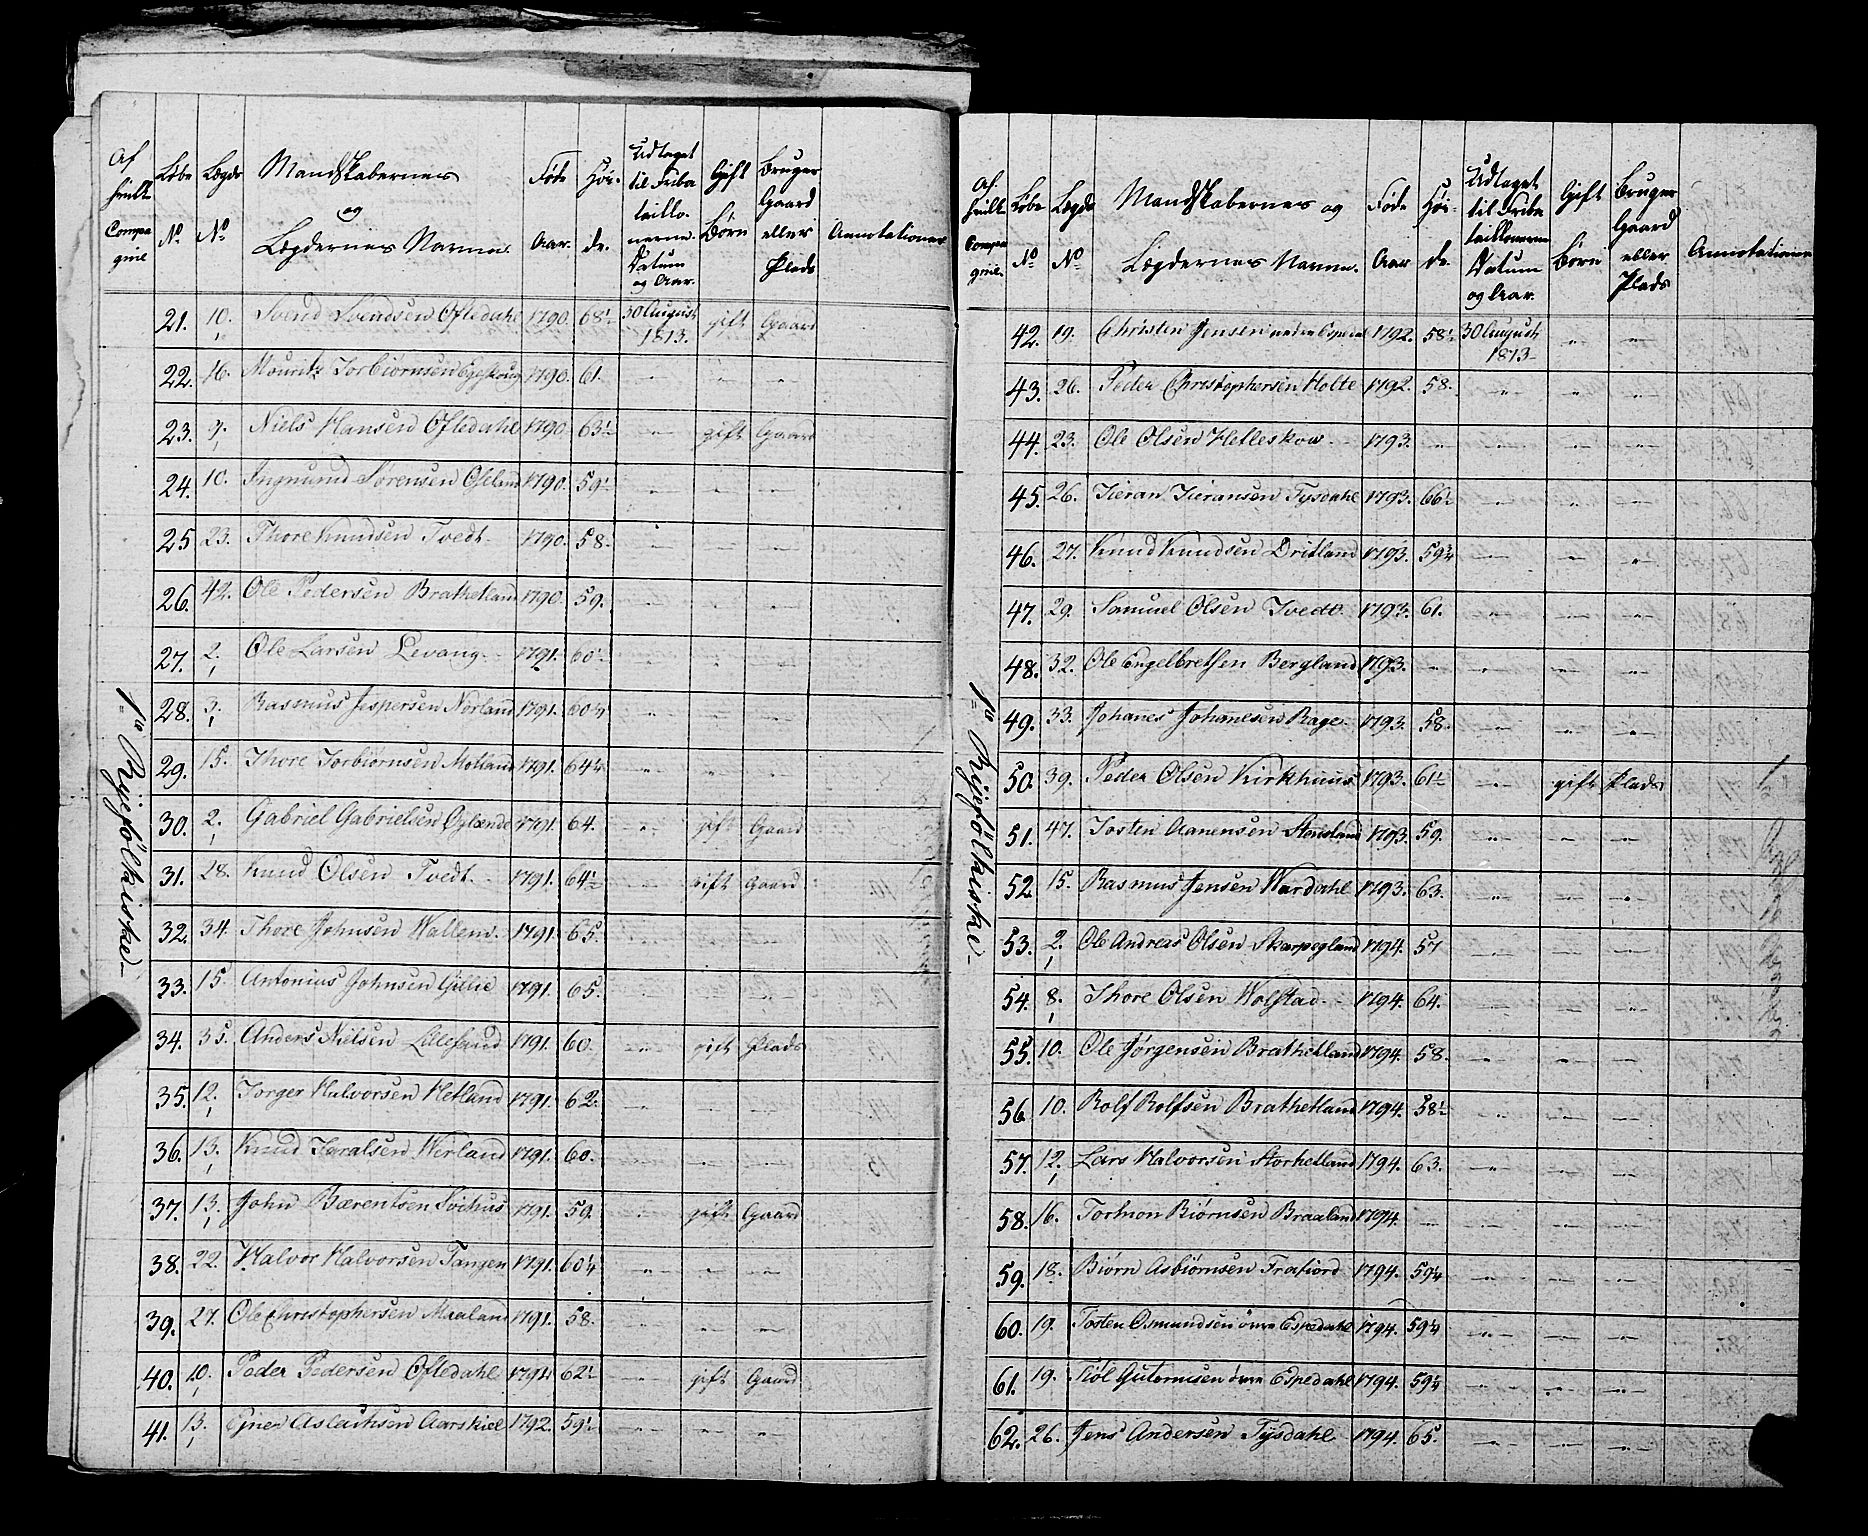 Af hvilke Compagnie | Løbe No | Lægds No | Mandskabernes og Lægdernes Navne. | Føde Aar. | Høide. | Udtaget til Fribataillonerne. Datum og Aar. | Gift Børn | Bruger Gaard eller Plads | Annotationer
1te Ryefølkeiske
21. 10. Svend Svendsen Ofledahl 1790. 68½ 30 August 1813. gift Gaard
22. 16. Mouritz Torbiørnsen 1790. 61. " " "
23. 9. Niels Hansen Ofledahl 1790 63½ " gift Gaard
24. 10. Ingmund Sørensen 1790. 59½ " " "
25. 23. Thore Knudsen Tvedt. 1790. 58. " " "
26. 42. Ole Pedersen Brathetland 1790. 59. " " "
27. 2. Ole Larsen Levang. 1791. 60½ " " "
28. 3. Rasmus Jespersen Norland 1791. 60¼ " " "
29. 15. Thore Torbiørnsen Molland 1791. 64¼ " " "
30. 2. Gabriel Gabrielsen 1791. 64. " gift Gaard
31. 28. Knud Olsen Tvedt. 1791. 64½ " gift Gaard
32. 34. Thore Johnsen Wallem. 1791. 65. " " "
33. 15. Antonius Johnsen Gillie 1791. 65. " " "
34. 35. Anders Nielsen Lillesund 1791. 60. " gift Plads
35. 12. Torger Halvorsen Hetland 1791. 62. " " "
36. 13. Knud Taralsen Wirland 1791. 60. " " "
37. 13. John Bærentsen Svihus 1791. 59. " gift Gaard
38. 22. Halvor Halvorsen Tangen 1791. 60¼ " " "
39. 27. Ole Christophersen Maaland 1791. 58. " " "
40. 10. Peder Pedersen Ofledahl 1792. 62½ " gift Gaard
41. 13. Ejner Aslachsen Aarskiel 1792. 59½ " " "
Af hvilke Compagnie. | Løbe No | Lægds No | Mandskabernes og Lægdernes Navne. | Føde Aar | Høide. | Udtaget til Fribataillonerne Datum og Aar. | Gift Børn | Bruger Gaard eller Plads | Annotationer
1te Ryefølkeiske
42. 19. Christen Jensen nedre Espedal 1792. 58½ 30 August 1813 " "
43. 26. Peder Christophersen Holte 1792. 58. " " "
44. 23. Ole Olsen Helleskow. 1793. " " " "
45. 26. Tieran Tieransen Tysdahl 1793. 66½ " " "
46. 27. Knud Knudsen Dritland 1793. 59¾ " " "
47. 29. Samuel Olsen Tvedt. 1793. 61. " " "
48. 32. Ole Engelbretsen Bergland 1793. " " " "
49. 33. Johanes Johanesen Rage. 1793. 58. " " "
50. 39. Peder Olsen Kirkhuus 1793. 61½ " gift Plads
51. 47. Tosten Aanensen 1793. 59. " " "
52. 15. Rasmus Jensen Wardahl 1793. 63. " " "
53. 2. Ole Andreas Olsen Skarpegland 1794. 57 " " "
54. 8. Thore Olsen Wolstad. 1794. 64. " " "
55. 10. Ole Jørgensen Brathetland 1794. 58. " " "
56. 10. Rolf Rolfsen Brathetland 1794. 58½ " " "
57. 12. Lars Halvorsen Storhetland 1794. 63. " " "
58. 16. Tormon Biørnsen Braaland 1794. " " " "
59. 18. Biørn Asbiørnsen Frafiord 1794. 59¼ " " "
60. 19. Tosten Osmundsen øvre Espedahl 1794. 59¼ " " "
61. 19. Tiøl Gutormsen øvre Espedahl 1794. 59¼ " " "
62. 26. Jens Andersen Tysdahl 1794. 65. " " "